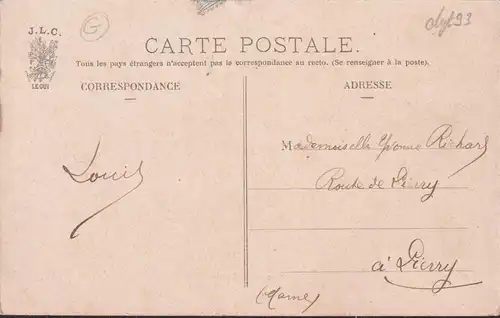 J.L.C.
LE GUI
G
dlyt93
CARTE POSTALE.
Tous les pays étrangers n'acceptent pas la correspondance au recto. (Se renseigner à la poste).
CORRESPONDANCE
Louis
ADRESSE
Mademoiselle Yvonne Richard
Route de Pierry
à Pierry
(Marne)